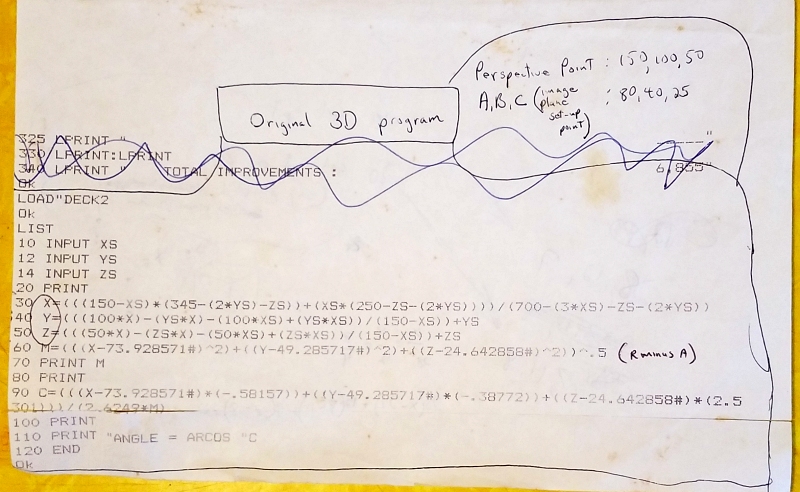 Perspective Point : 150, 100, 50
A, B, C (image plane set-up point) : 80, 40, 25
Original 3D program
325 LPRINT " ----"
330 LPRINT:LPRINT
340 LPRINT " TOTAL IMPROVEMENTS : 6,855"
Ok
LOAD"DECK2
Ok
LIST
10 INPUT XS
12 INPUT YS
14 INPUT ZS
20 PRINT
30 X=(((150-XS)*(345-(2*YS)-ZS))+(XS*(250-ZS-(2*YS))))/(700-(3*XS)-ZS-(2*YS))
40 Y=(((100*X)-(YS*X)-(100*XS)+(YS*XS))/(150-XS))+YS
50 Z=(((50*X)-(ZS*X)-(50*XS)+(ZS*XS))/(150-XS))+ZS
60 M=(((X-73.928571#)^2)+((Y-49.285717#)^2)+((Z-24.642858#)^2))^.5 (R minus A)
70 PRINT M
80 PRINT
90 C=(((X-73.928571#)*(-.58157))+((Y-49.285717#)*(-.38772))+((Z-24.642858#)*(2.5
301)))/(2.6249*M)
100 PRINT
110 PRINT "ANGLE = ARCOS "C
120 END
Ok